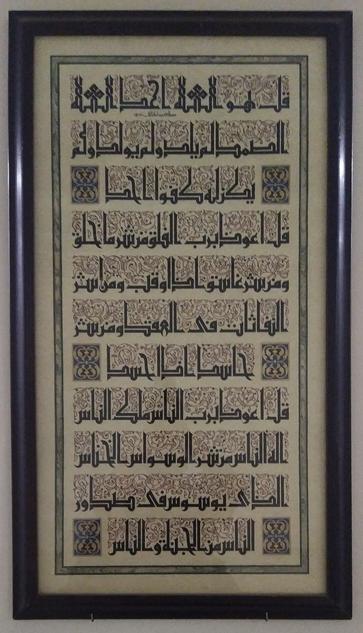 قل هو الله احد الله
الصمد لم يلد و لم يولد و لم
يكن له كفوا احد
قل اعوذ برب الفلق من شر ما خلق
و من شر غاسق اذا وقب و من شر
النفاثات فى العقد و من شر
حاسد اذا حسد
قل اعوذ برب الناس ملك الناس
اله الناس من شر الوسواس الخناس
الذى يوسوس فى صدور
الناس من الجنة و الناس